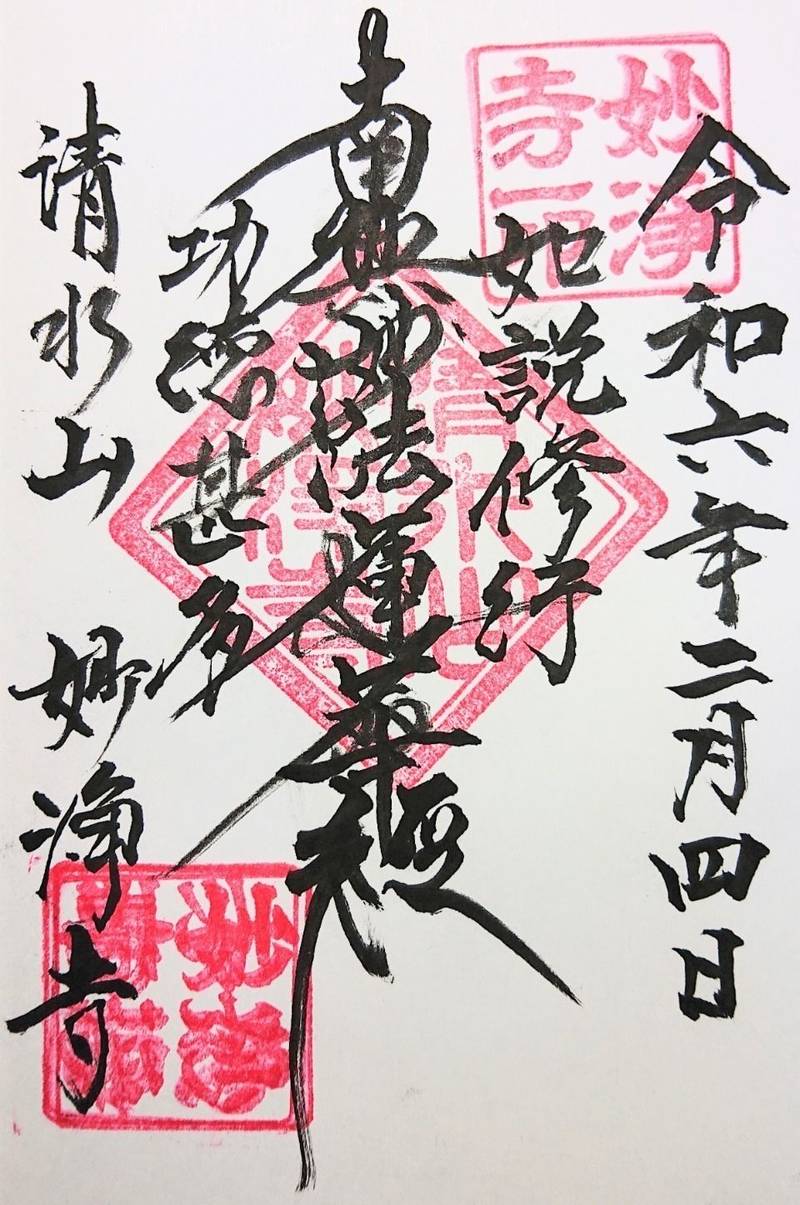 令和六年二月四日
如説修行
南無妙法蓮華経
功徳甚多
清水山 妙浄寺
妙浄
寺
清水山
妙浄寺